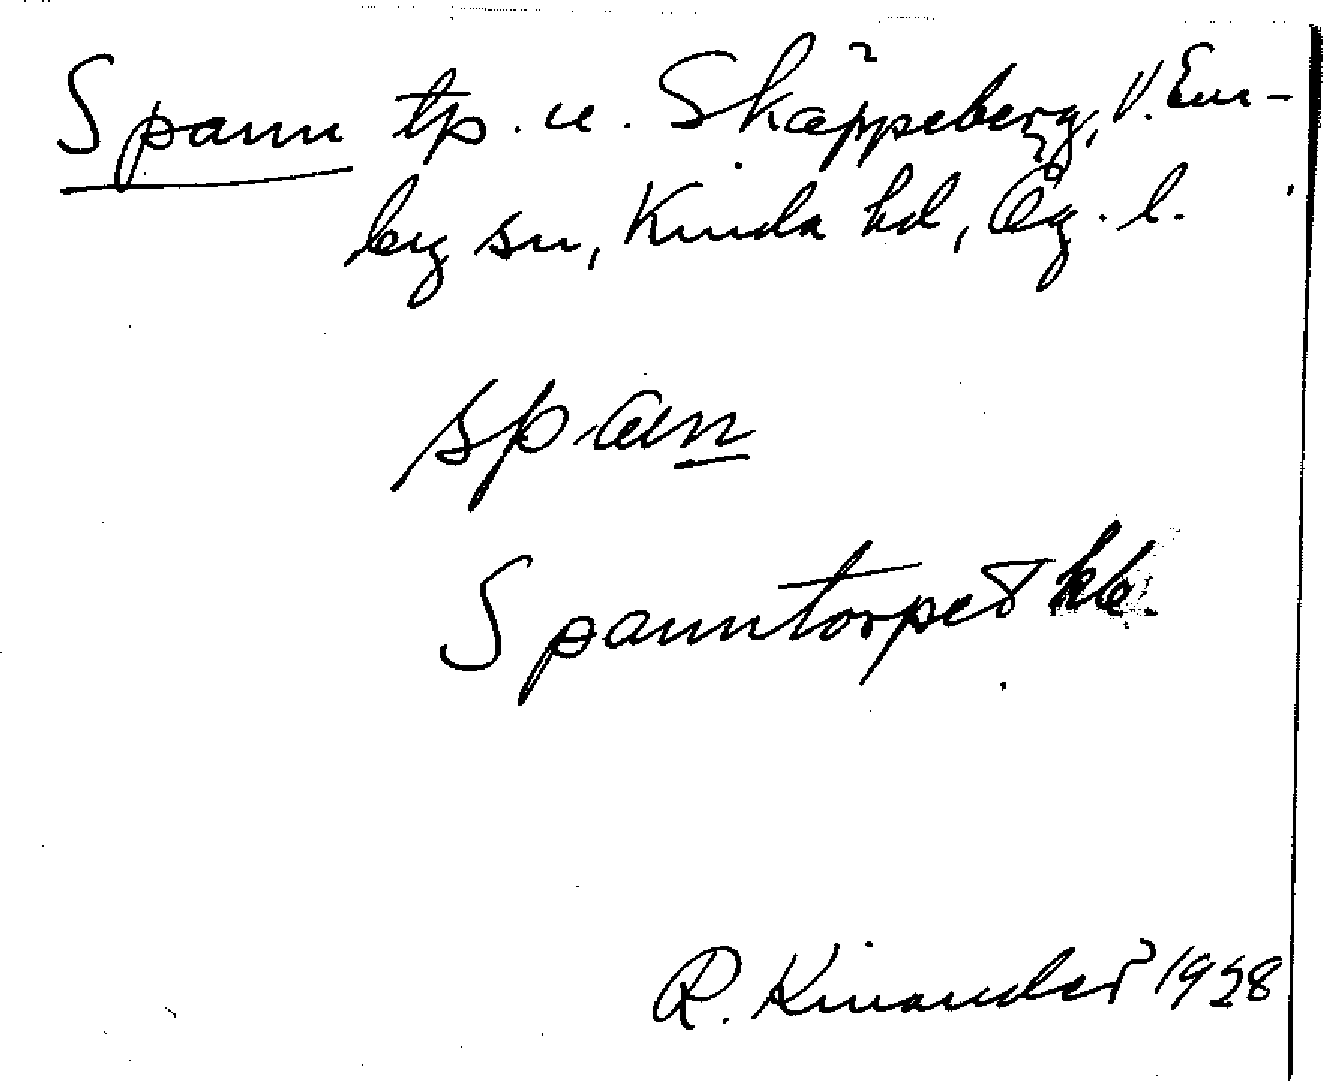 Spann tp. u. Skäppeberg, V. Em-
by sn, Kinda hd, Ög. l.
span
Spanntorpet
R. Kinander 1928